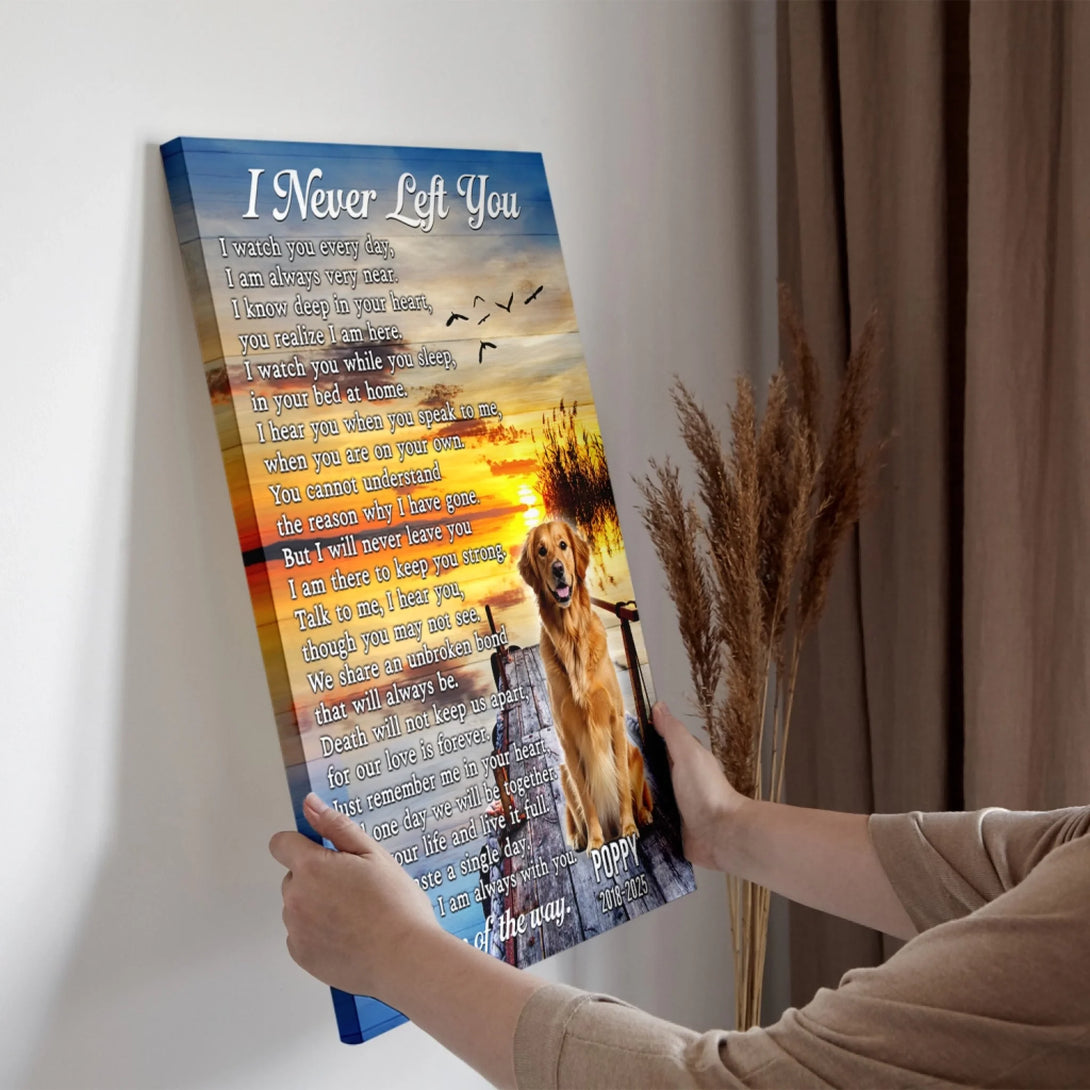 I Never Left You
I watch you every day,
I am always very near.
I know deep in your heart,
you realize I am here.
I watch you while you sleep,
in your bed at home.
I hear you when you speak to me,
when you are on your own.
You cannot understand
the reason why I have gone.
But I will never leave you
I am there to keep you strong.
Talk to me, I hear you,
though you may not see.
We share an unbroken bond
that will always be.
Death will not keep us apart,
for our love is forever.
Just remember me in your heart,
one day we will be together.
your life and live it full.
a single day,
I am always with you.
of the way.
POPPY
2018-2025